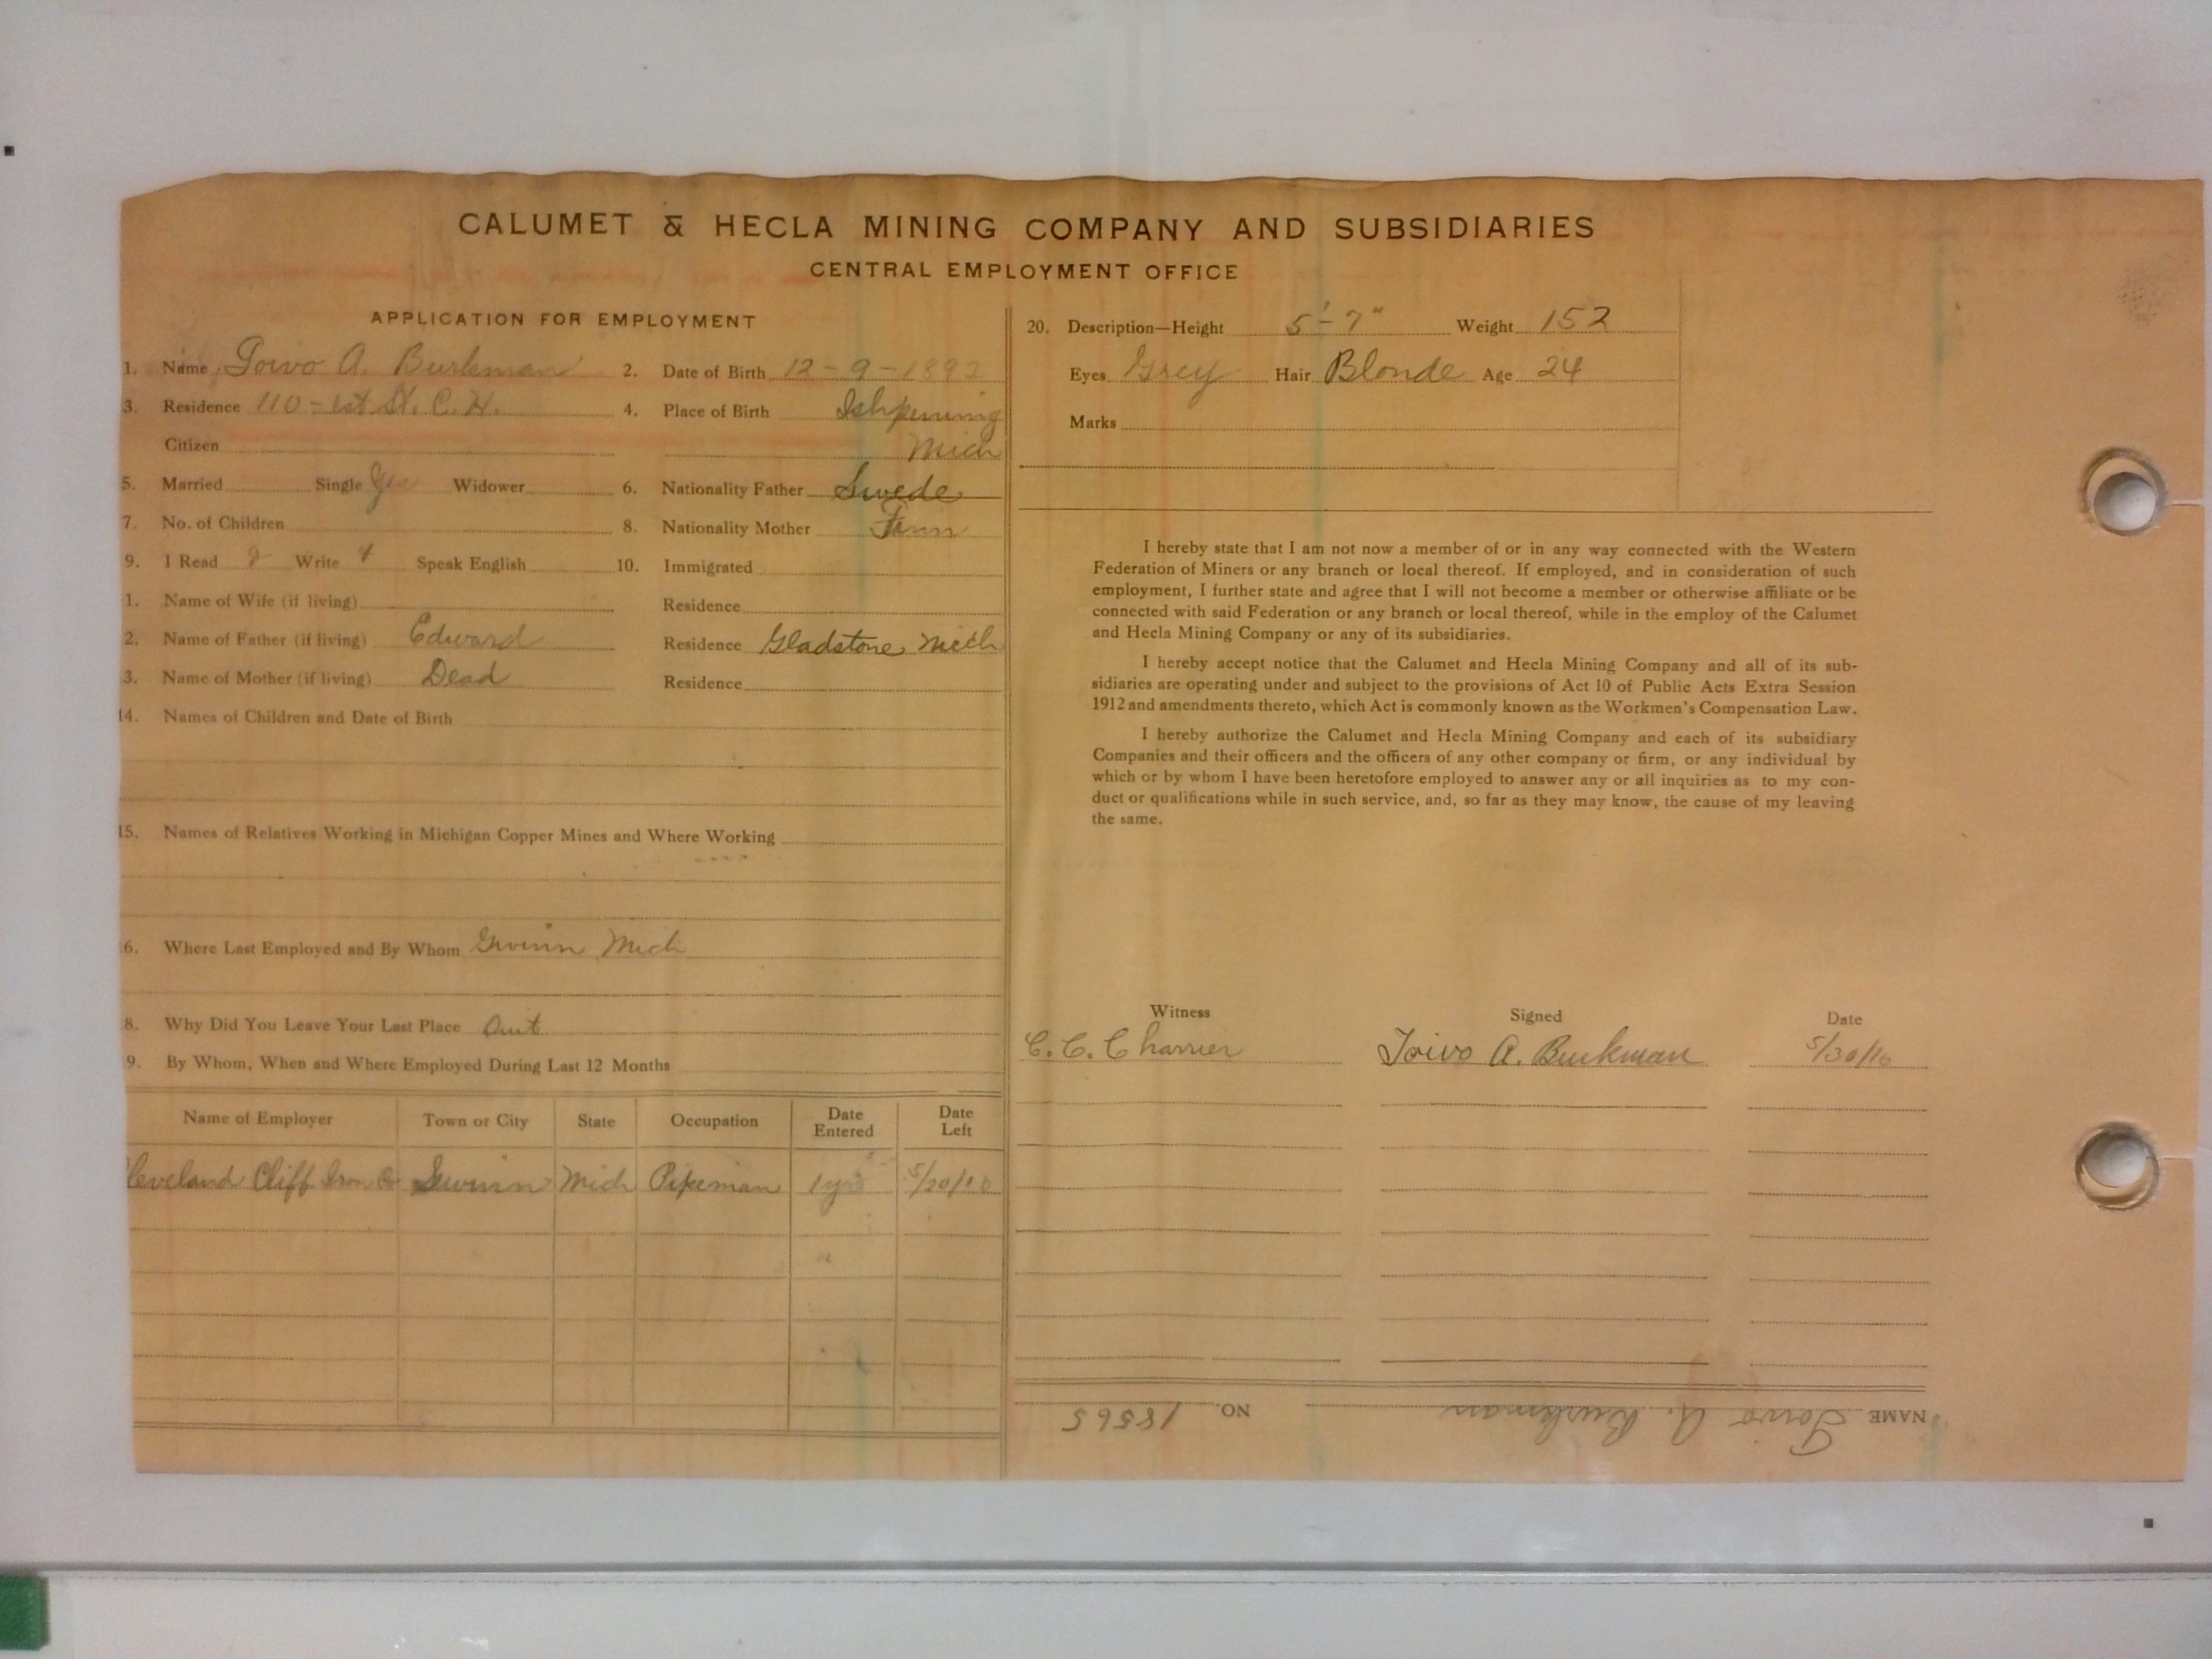 CALUMET & HECLA MINING COMPANY AND SUBSIDIARIES
CENTRAL EMPLOYMENT OFFICE
APPLICATION FOR EMPLOYMENT
1. Name Toivo A. Burkman 2. Date of Birth 12-9-1892
3. Residence 110-1st St. C. H. 4. Place of Birth Ishpeming
Citizen Mich
5. Married Single Yes Widower 6. Nationality Father Swede
7. No. of Children 8. Nationality Mother Finn
9. I Read Write Speak English 10. Immigrated
1. Name of Wife (if living) Residence
2. Name of Father (if living) Edward Residence Gladstone Mich
3. Name of Mother (if living) Dead Residence
14. Names of Children and Date of Birth
15. Names of Relatives Working in Michigan Copper Mines and Where Working
6. Where Last Employed and By Whom Gwinn Mich
8. Why Did You Leave Your Last Place
9. By Whom, When and Where Employed During Last 12 Months
Name of Employer Town or City State Occupation Date Entered Date Left
leveland Cliff Iron Co Gwinn Mich Pipeman 1 yr 5/20/16
20. Description—Height 5'-7" Weight 152
Eyes Grey Hair Blonde Age 24
Marks
I hereby state that I am not now a member of or in any way connected with the Western
Federation of Miners or any branch or local thereof. If employed, and in consideration of such
employment, I further state and agree that I will not become a member or otherwise affiliate or be
connected with said Federation or any branch or local thereof, while in the employ of the Calumet
and Hecla Mining Company or any of its subsidiaries.
I hereby accept notice that the Calumet and Hecla Mining Company and all of its sub-
sidiaries are operating under and subject to the provisions of Act 10 of Public Acts Extra Session
1912 and amendments thereto, which Act is commonly known as the Workmen's Compensation Law.
I hereby authorize the Calumet and Hecla Mining Company and each of its subsidiary
Companies and their officers and the officers of any other company or firm, or any individual by
which or by whom I have been heretofore employed to answer any or all inquiries as to my con-
duct or qualifications while in such service, and, so far as they may know, the cause of my leaving
the same.
Witness Signed Date
C. C. Charrier Toivo A. Burkman 5/30/16
NAME Toivo A. Burkman NO. 18565